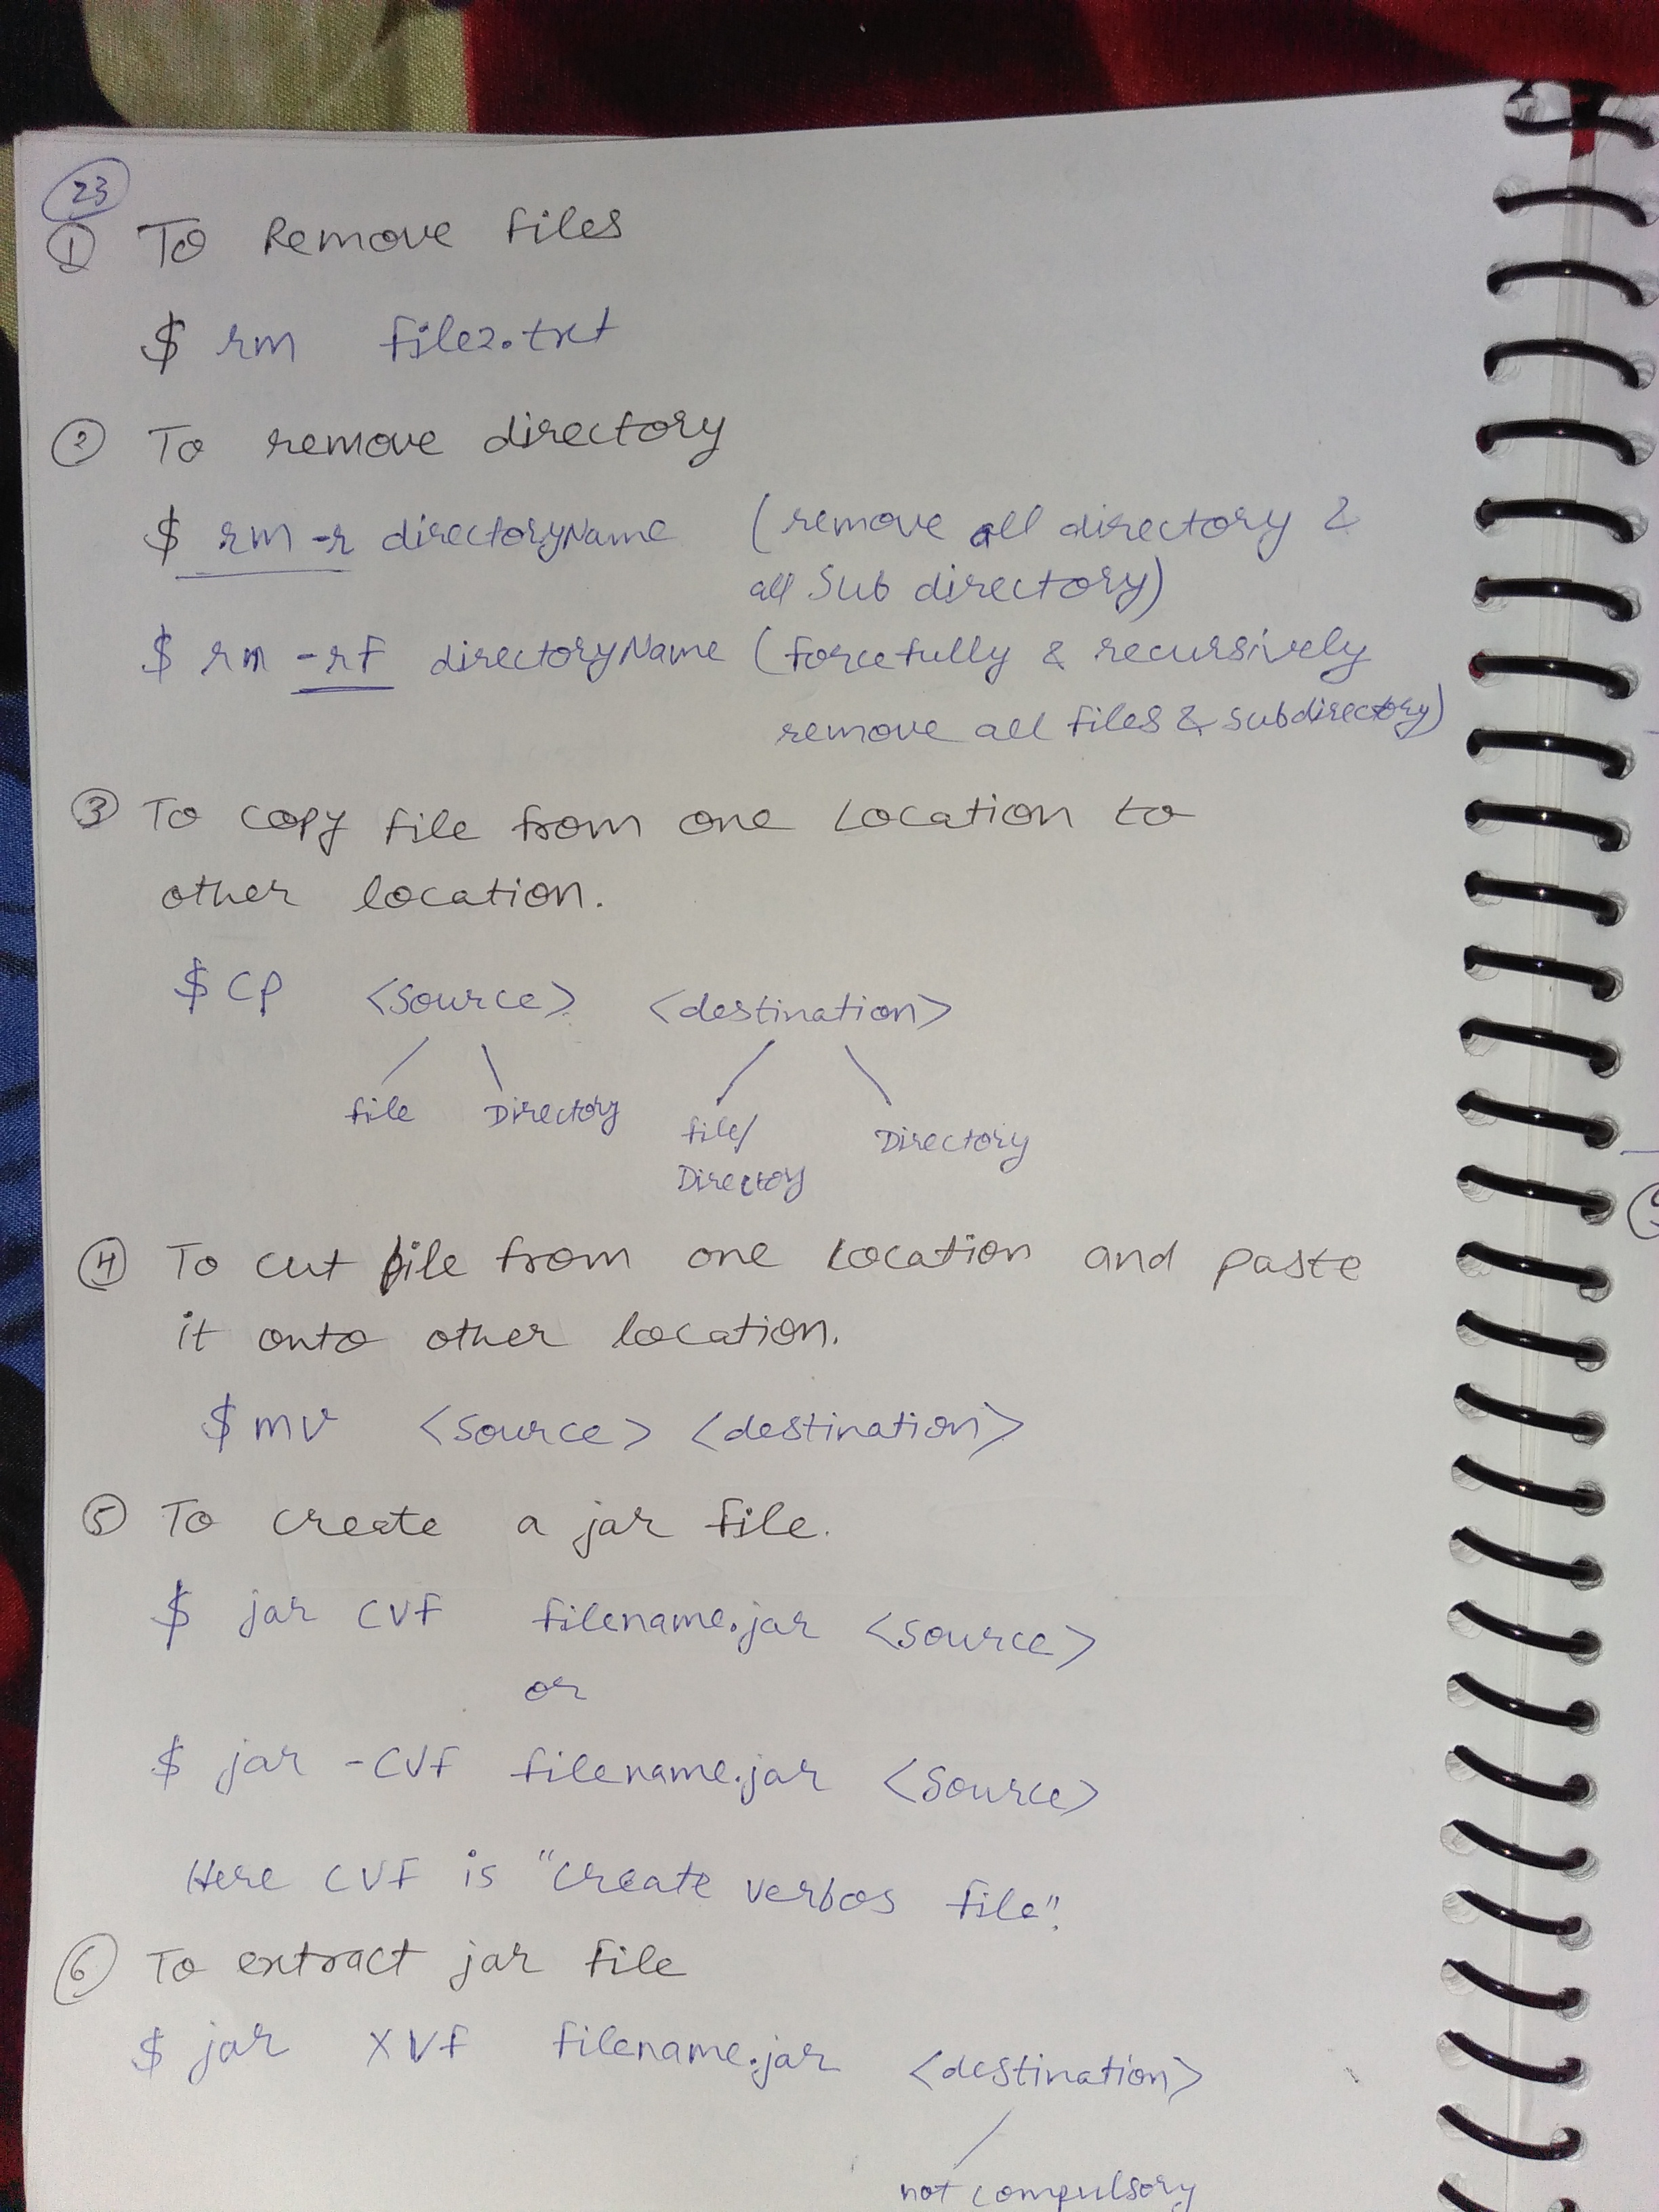 23
① To Remove files
$ rm file2.txt
② To remove directory
$ rm -r directoryName (remove all directory &
all Sub directory)
$ rm -rf directoryName (forcefully & recursively
remove all files & subdirectory)
③ To copy file from one location to
other location.
$ cp <source> <destination>
file Directory file/ Directory
Directory
④ To cut file from one location and paste
it onto other location.
$ mv <source> <destination>
⑤ To create a jar file.
$ jar cvf filename.jar <source>
or
$ jar -cvf filename.jar <source>
Here cvf is "create verbos file".
⑥ To extract jar file
$ jar xvf filename.jar <destination>
not compulsory